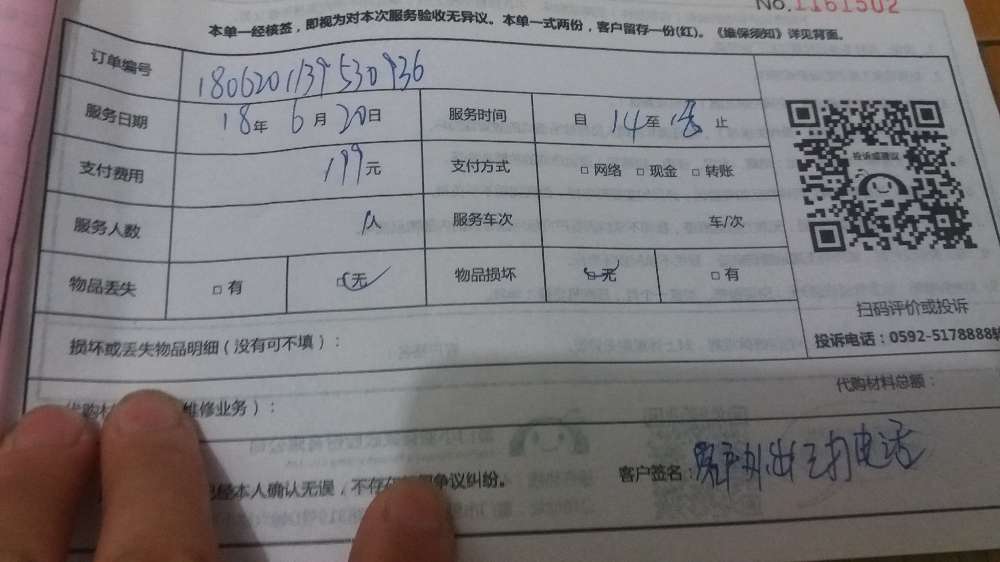 No.1161502
本单一经核签，即视为对本次服务验收无异议。本单一式两份，客户留存一份(红)。《维保须知》详见背面。
订单编号 180620113９530936
服务日期 18年 6月 20日 服务时间 自 14 至 止
支付费用 199元 支付方式 □ 网络 □ 现金 □ 转账
投诉或建议
服务人数 人 服务车次 车/次
物品丢失 □ 有 □ 无 物品损坏 □ 无 □ 有
扫码评价或投诉
投诉电话：0592-5178888转
损坏或丢失物品明细（没有可不填）：
代购材料总额：
代购材 维修业务）：
已经本人确认无误，不存在 争议纠纷。
客户签名： 客户外出已打电话